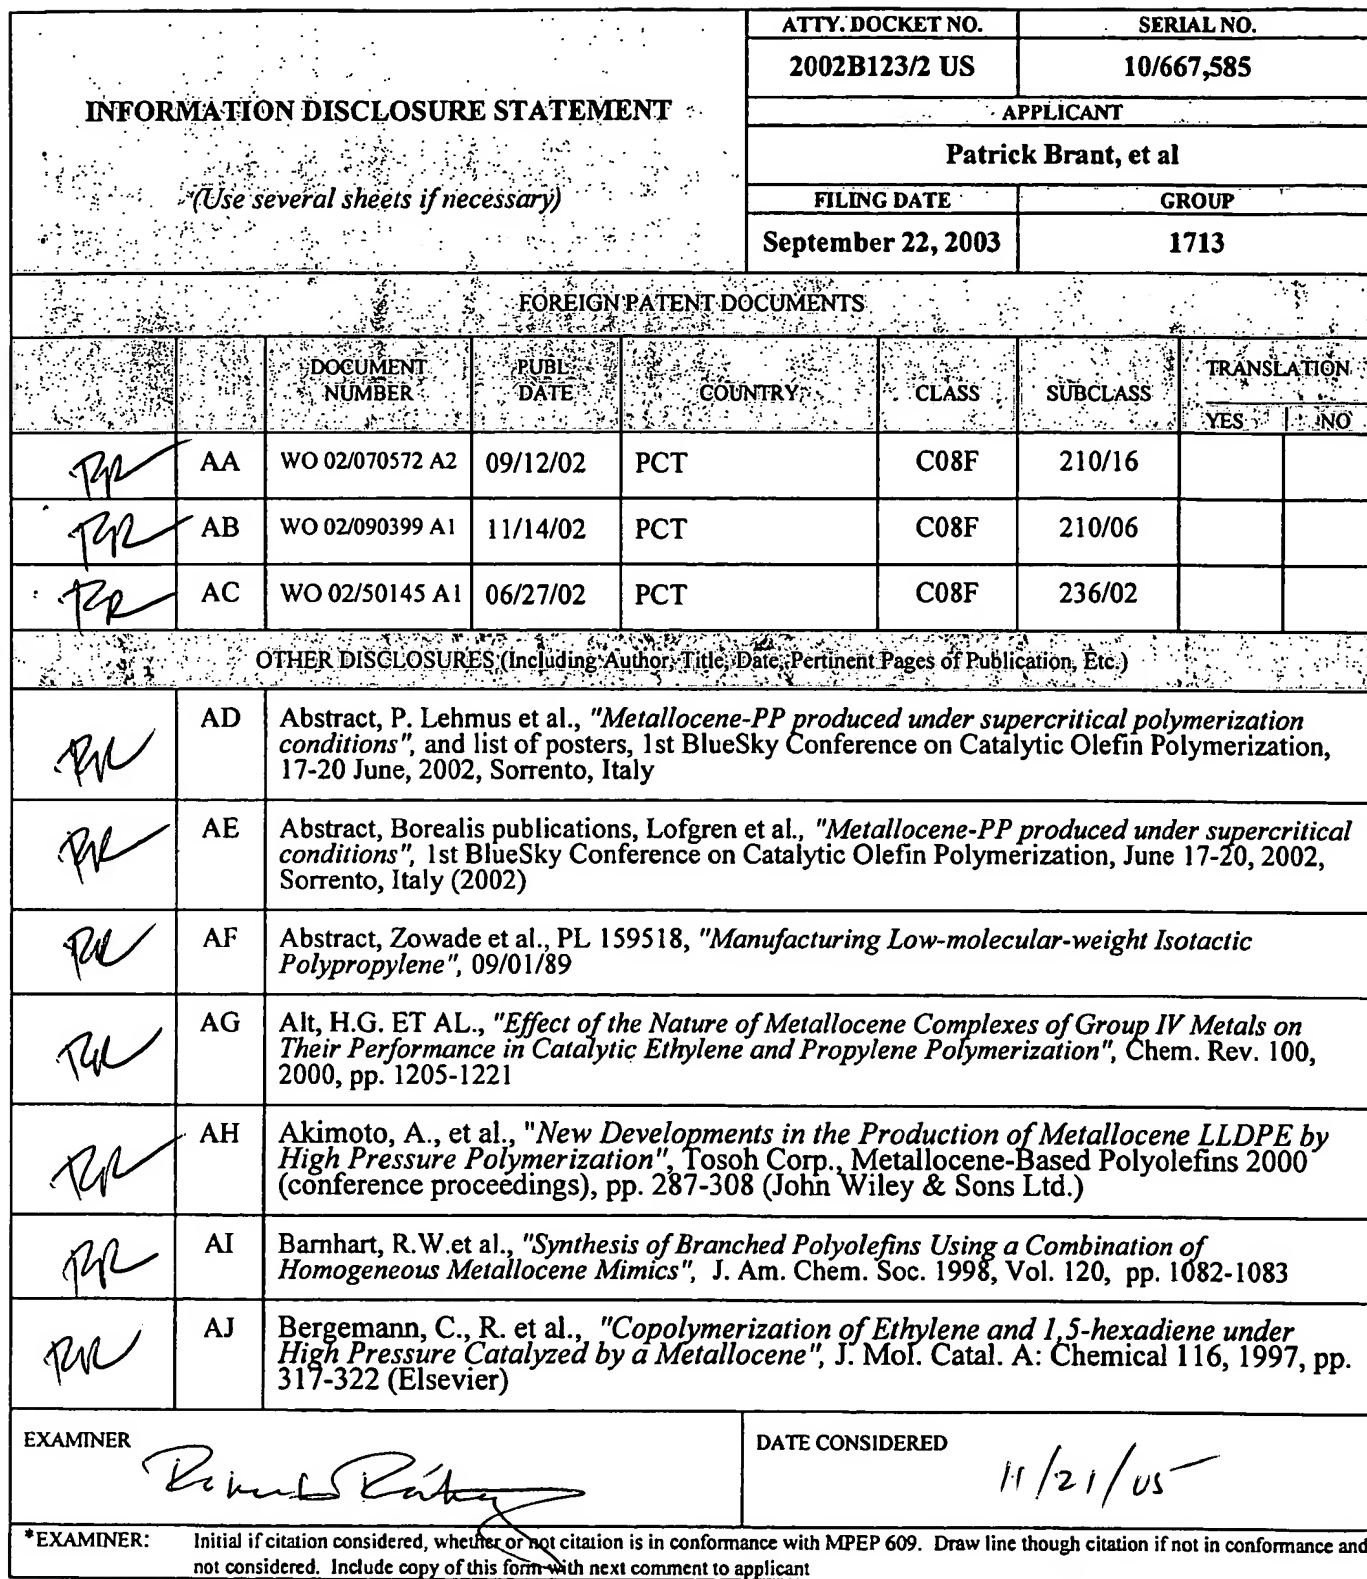 INFORMATION DISCLOSURE STATEMENT
(Use several sheets if necessary)
ATTY. DOCKET NO. SERIAL NO.
2002B123/2 US 10/667,585
APPLICANT
Patrick Brant, et al
FILING DATE GROUP
September 22, 2003 1713
FOREIGN PATENT DOCUMENTS
DOCUMENT NUMBER PUBL. DATE COUNTRY CLASS SUBCLASS TRANSLATION
YES NO
RR AA WO 02/070572 A2 09/12/02 PCT C08F 210/16
RR AB WO 02/090399 A1 11/14/02 PCT C08F 210/06
RR AC WO 02/50145 A1 06/27/02 PCT C08F 236/02
OTHER DISCLOSURES (Including Author, Title, Date, Pertinent Pages of Publication, Etc.)
RR AD Abstract, P. Lehmus et al., "Metallocene-PP produced under supercritical polymerization
conditions", and list of posters, 1st BlueSky Conference on Catalytic Olefin Polymerization,
17-20 June, 2002, Sorrento, Italy
RR AE Abstract, Borealis publications, Lofgren et al., "Metallocene-PP produced under supercritical
conditions", 1st BlueSky Conference on Catalytic Olefin Polymerization, June 17-20, 2002,
Sorrento, Italy (2002)
RR AF Abstract, Zowade et al., PL 159518, "Manufacturing Low-molecular-weight Isotactic
Polypropylene", 09/01/89
RR AG Alt, H.G. ET AL., "Effect of the Nature of Metallocene Complexes of Group IV Metals on
Their Performance in Catalytic Ethylene and Propylene Polymerization", Chem. Rev. 100,
2000, pp. 1205-1221
RR AH Akimoto, A., et al., "New Developments in the Production of Metallocene LLDPE by
High Pressure Polymerization", Tosoh Corp., Metallocene-Based Polyolefins 2000
(conference proceedings), pp. 287-308 (John Wiley & Sons Ltd.)
RR AI Barnhart, R.W.et al., "Synthesis of Branched Polyolefins Using a Combination of
Homogeneous Metallocene Mimics", J. Am. Chem. Soc. 1998, Vol. 120, pp. 1082-1083
RR AJ Bergemann, C., R. et al., "Copolymerization of Ethylene and 1,5-hexadiene under
High Pressure Catalyzed by a Metallocene", J. Mol. Catal. A: Chemical 116, 1997, pp.
317-322 (Elsevier)
EXAMINER
DATE CONSIDERED
11/21/05
*EXAMINER: Initial if citation considered, whether or not citation is in conformance with MPEP 609. Draw line though citation if not in conformance and
not considered. Include copy of this form with next comment to applicant